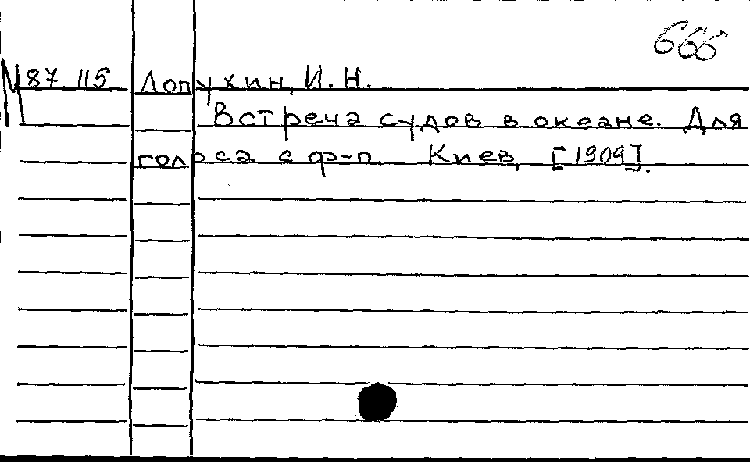 666
N 87 115 Лопухин, И. Н.
Встреча судов в океане. Для
голоса с ф-п Киев, [1909].